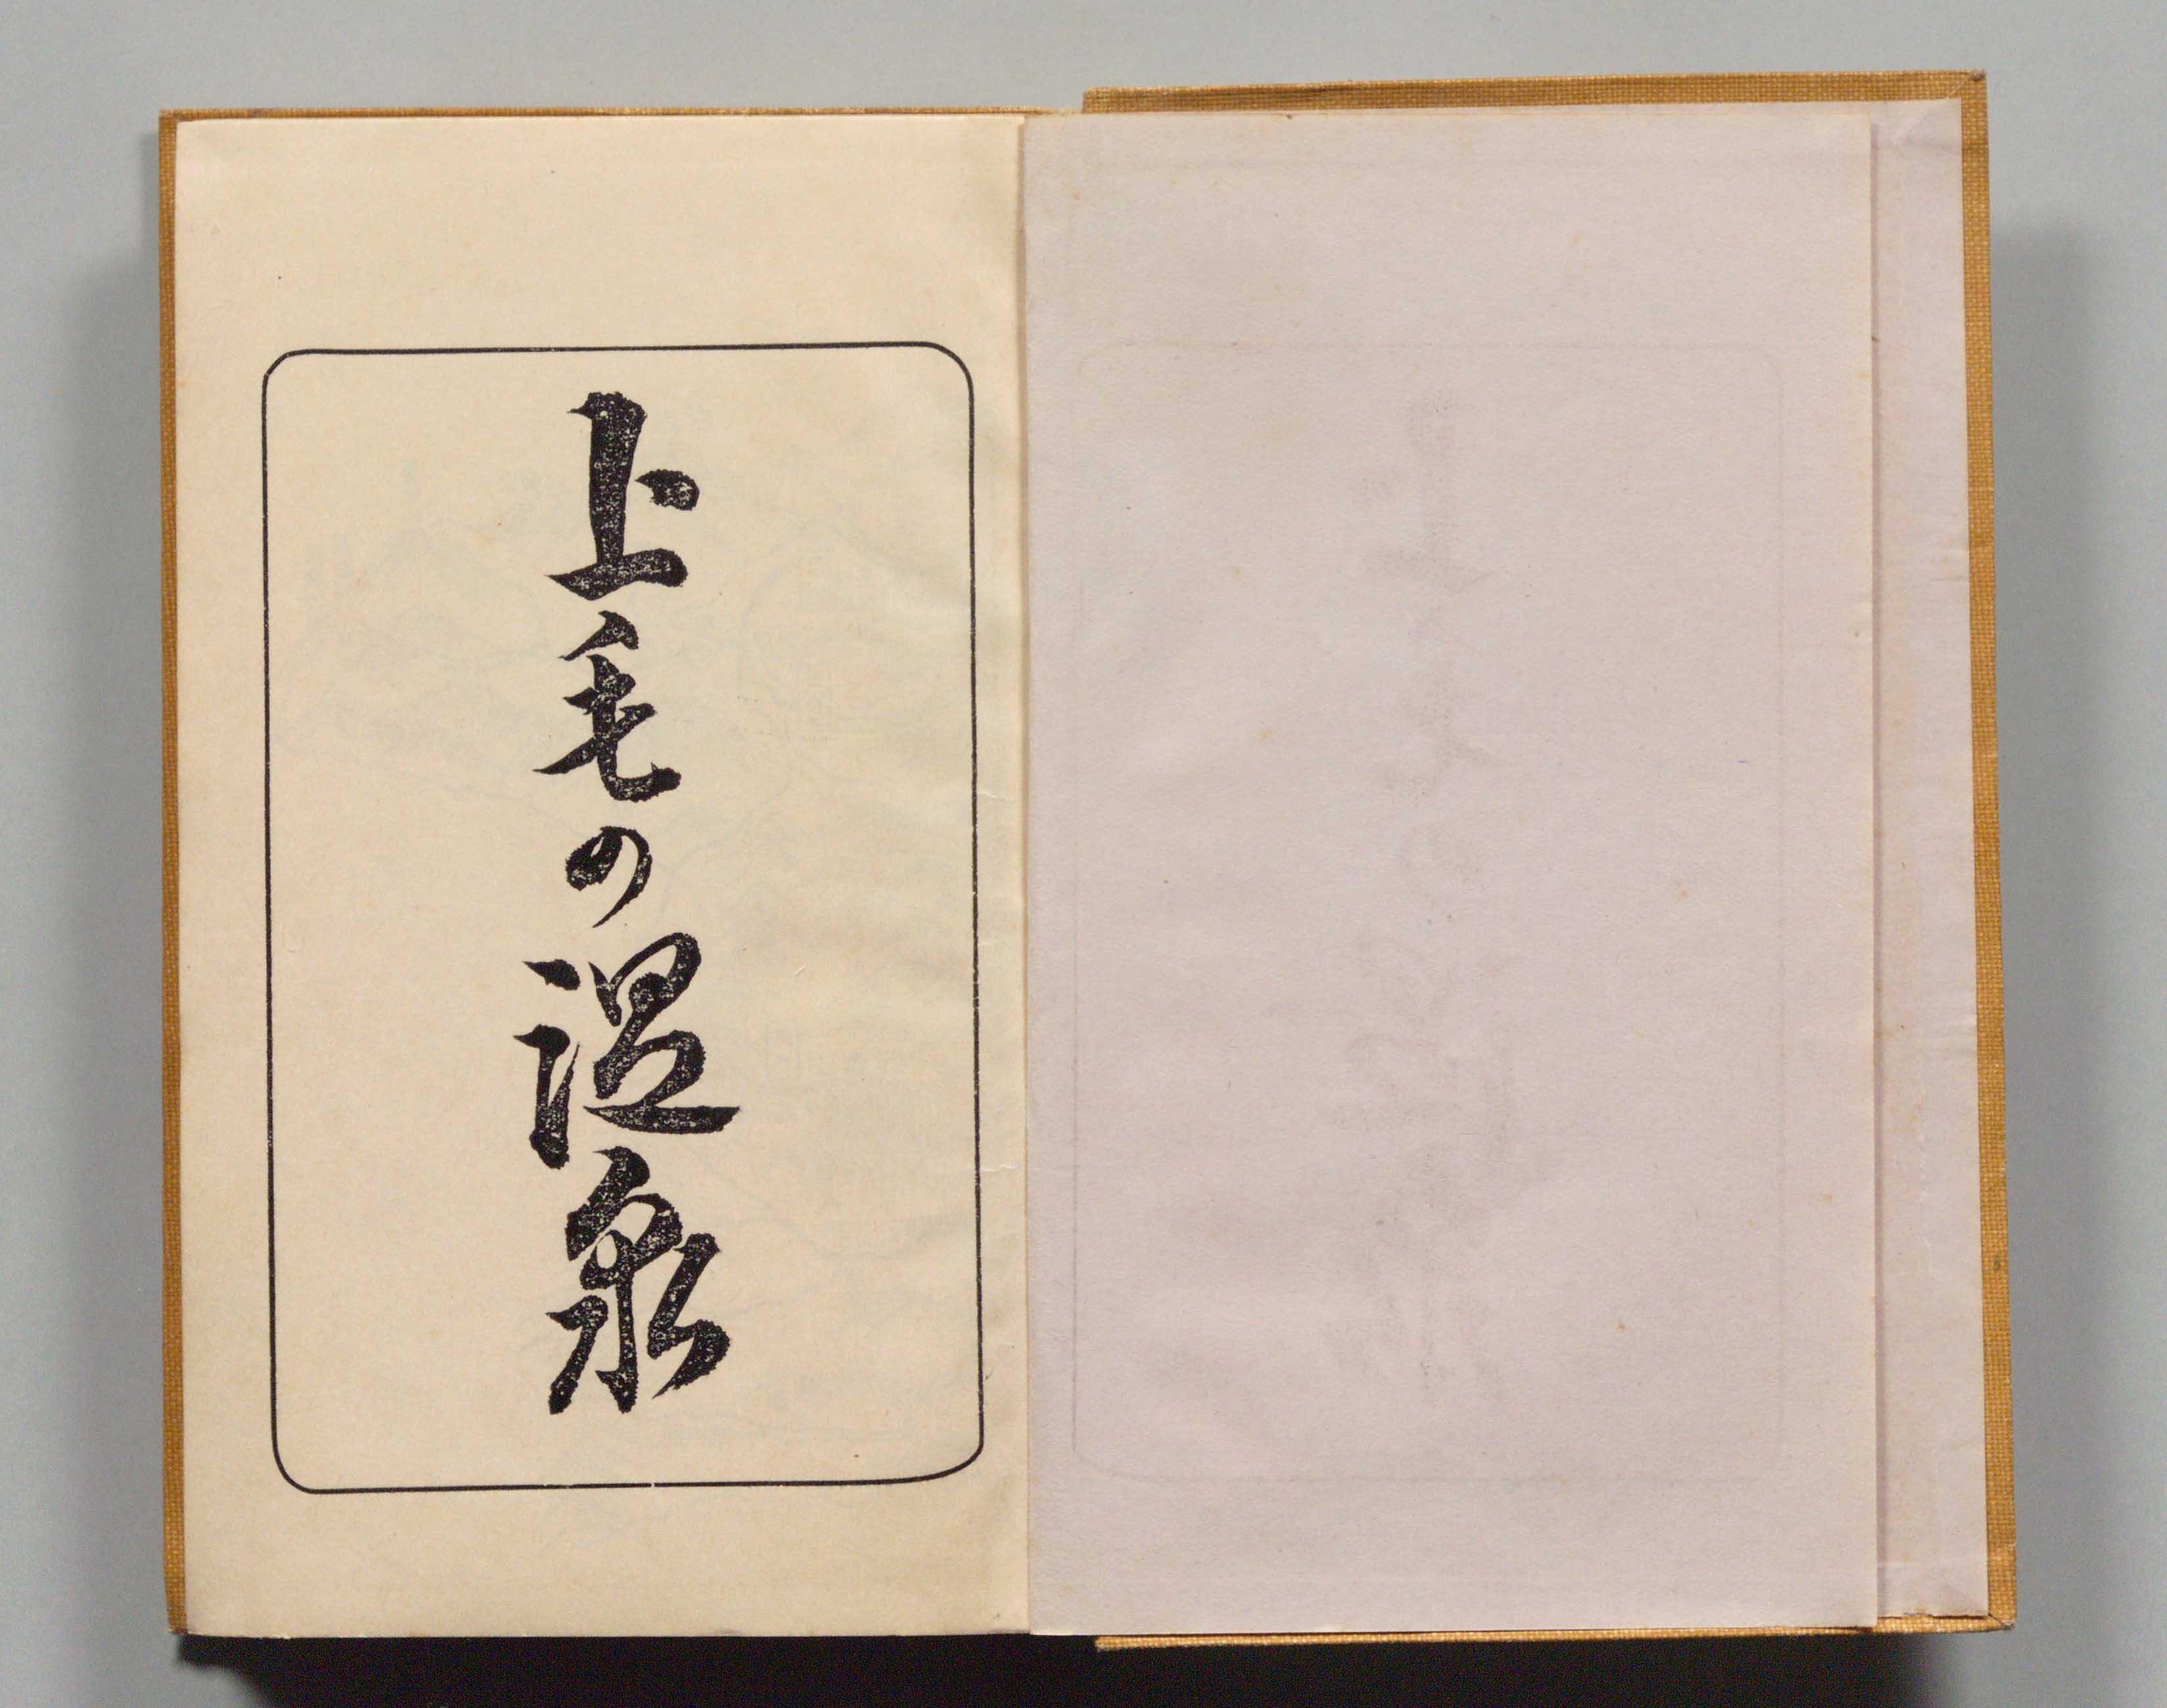 上毛の温泉